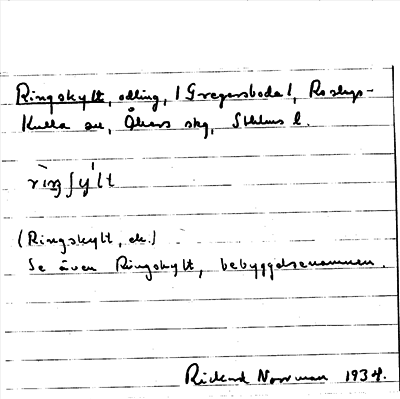 Ringskylt, odling, (Gregersboda), Roslags-
Kulla sn, Åkers skg, Sthlms l.
rìŋʃy´lt
(Ringskylt, ek.)
Se även Ringskylt, bebyggelsenamnen.
Rickard Norrman 1934.